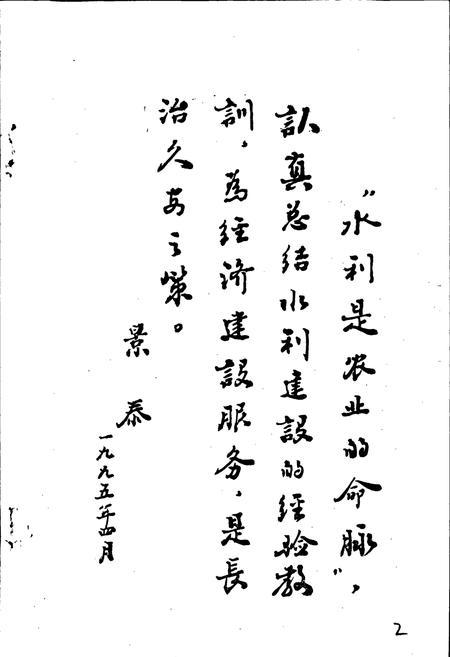 “水利是农业的命脉”，
认真总结水利建設的經验教
訓，為經济建設服务，是長
治久安之策。
景泰
一九九五年四月
2